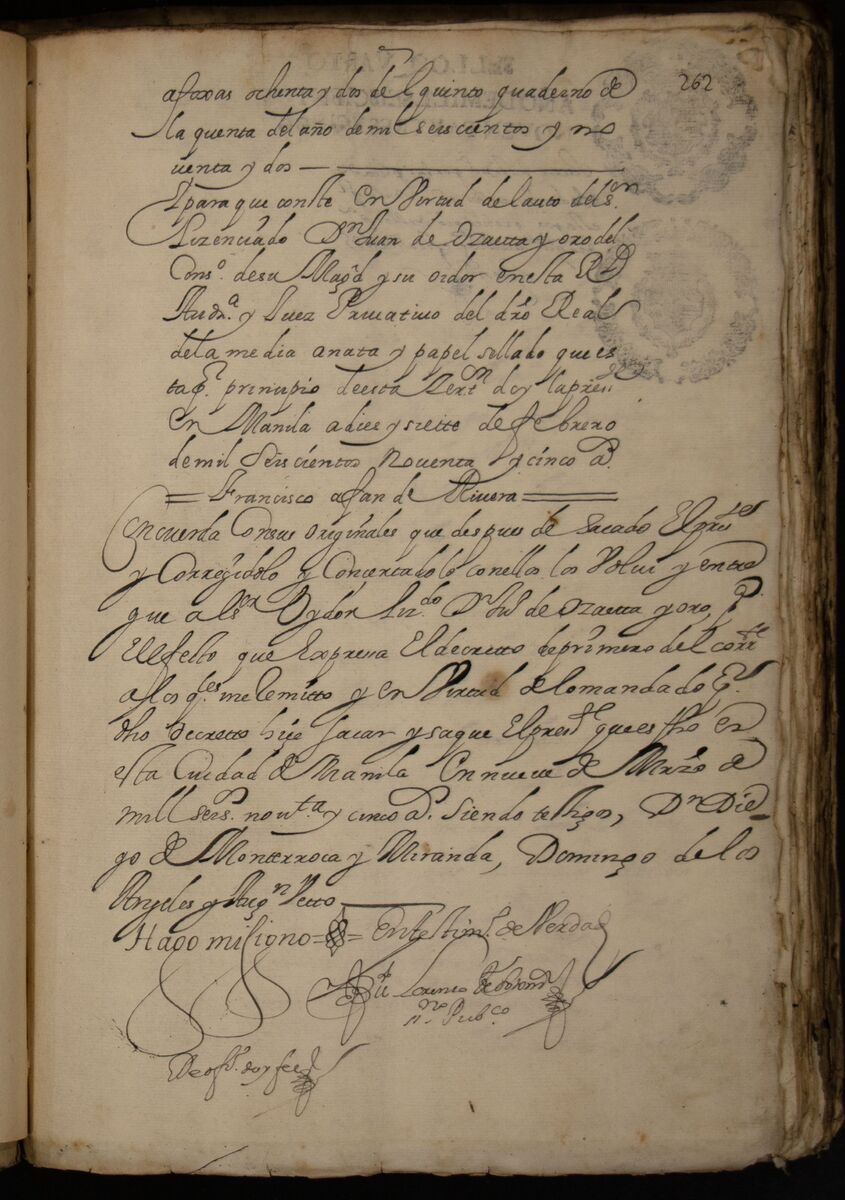 262
afoxas ochenta y dos del quinto quaderno de
la quenta del año de mil seis cientos y no
venta y dos
Y para que conste en Virtud del auto del s.or
Lizenciado D.n Juan de Ozaetta y oro del
Cons.o de su Mag.d y su oidor en esta R.l
Aud.a y Juez Privativo del dr.o Real
de la media anata y papel sellado que es
ta p.r principio de esta Zert.on doy la pres.te
en Manila a diez y siette de febrero
de mil Seis cientos noventa y cinco a.s
Francisco afan de Rivera
Concuerda Con sus originales que despues de Sacado El pres.te
y Corregidolo y Concertadolo con ellos los Volvi y entre
gue al s.or Oydor Liz.do D.n Ju.o de Ozaetta y oro, p.a
El efecto que Expresa El decretto de primero del corr.te
a los q.es me Remitto y en Virtud de lo mandado p.r
dho Decretto hize sacar y saque El pres.te que es fho en
esta Ciudad de Manila En nueve de Marzo de
mill seis.s nov.ta y cinco a.s siendo testigos, D.n Die
go de Monterroca y Miranda, Domingo de los
Angeles y Aug.n Petto
Hago mi signo = = En testim.o de Verdad
Lorenso
n.o Pub.co
De off.o doy fee